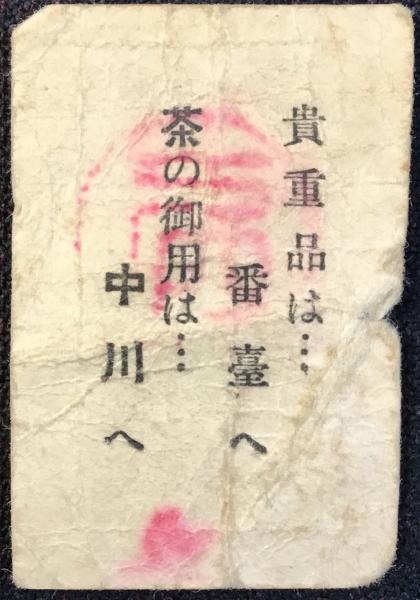 貴重品は…
番臺へ
茶の御用は…
中川へ